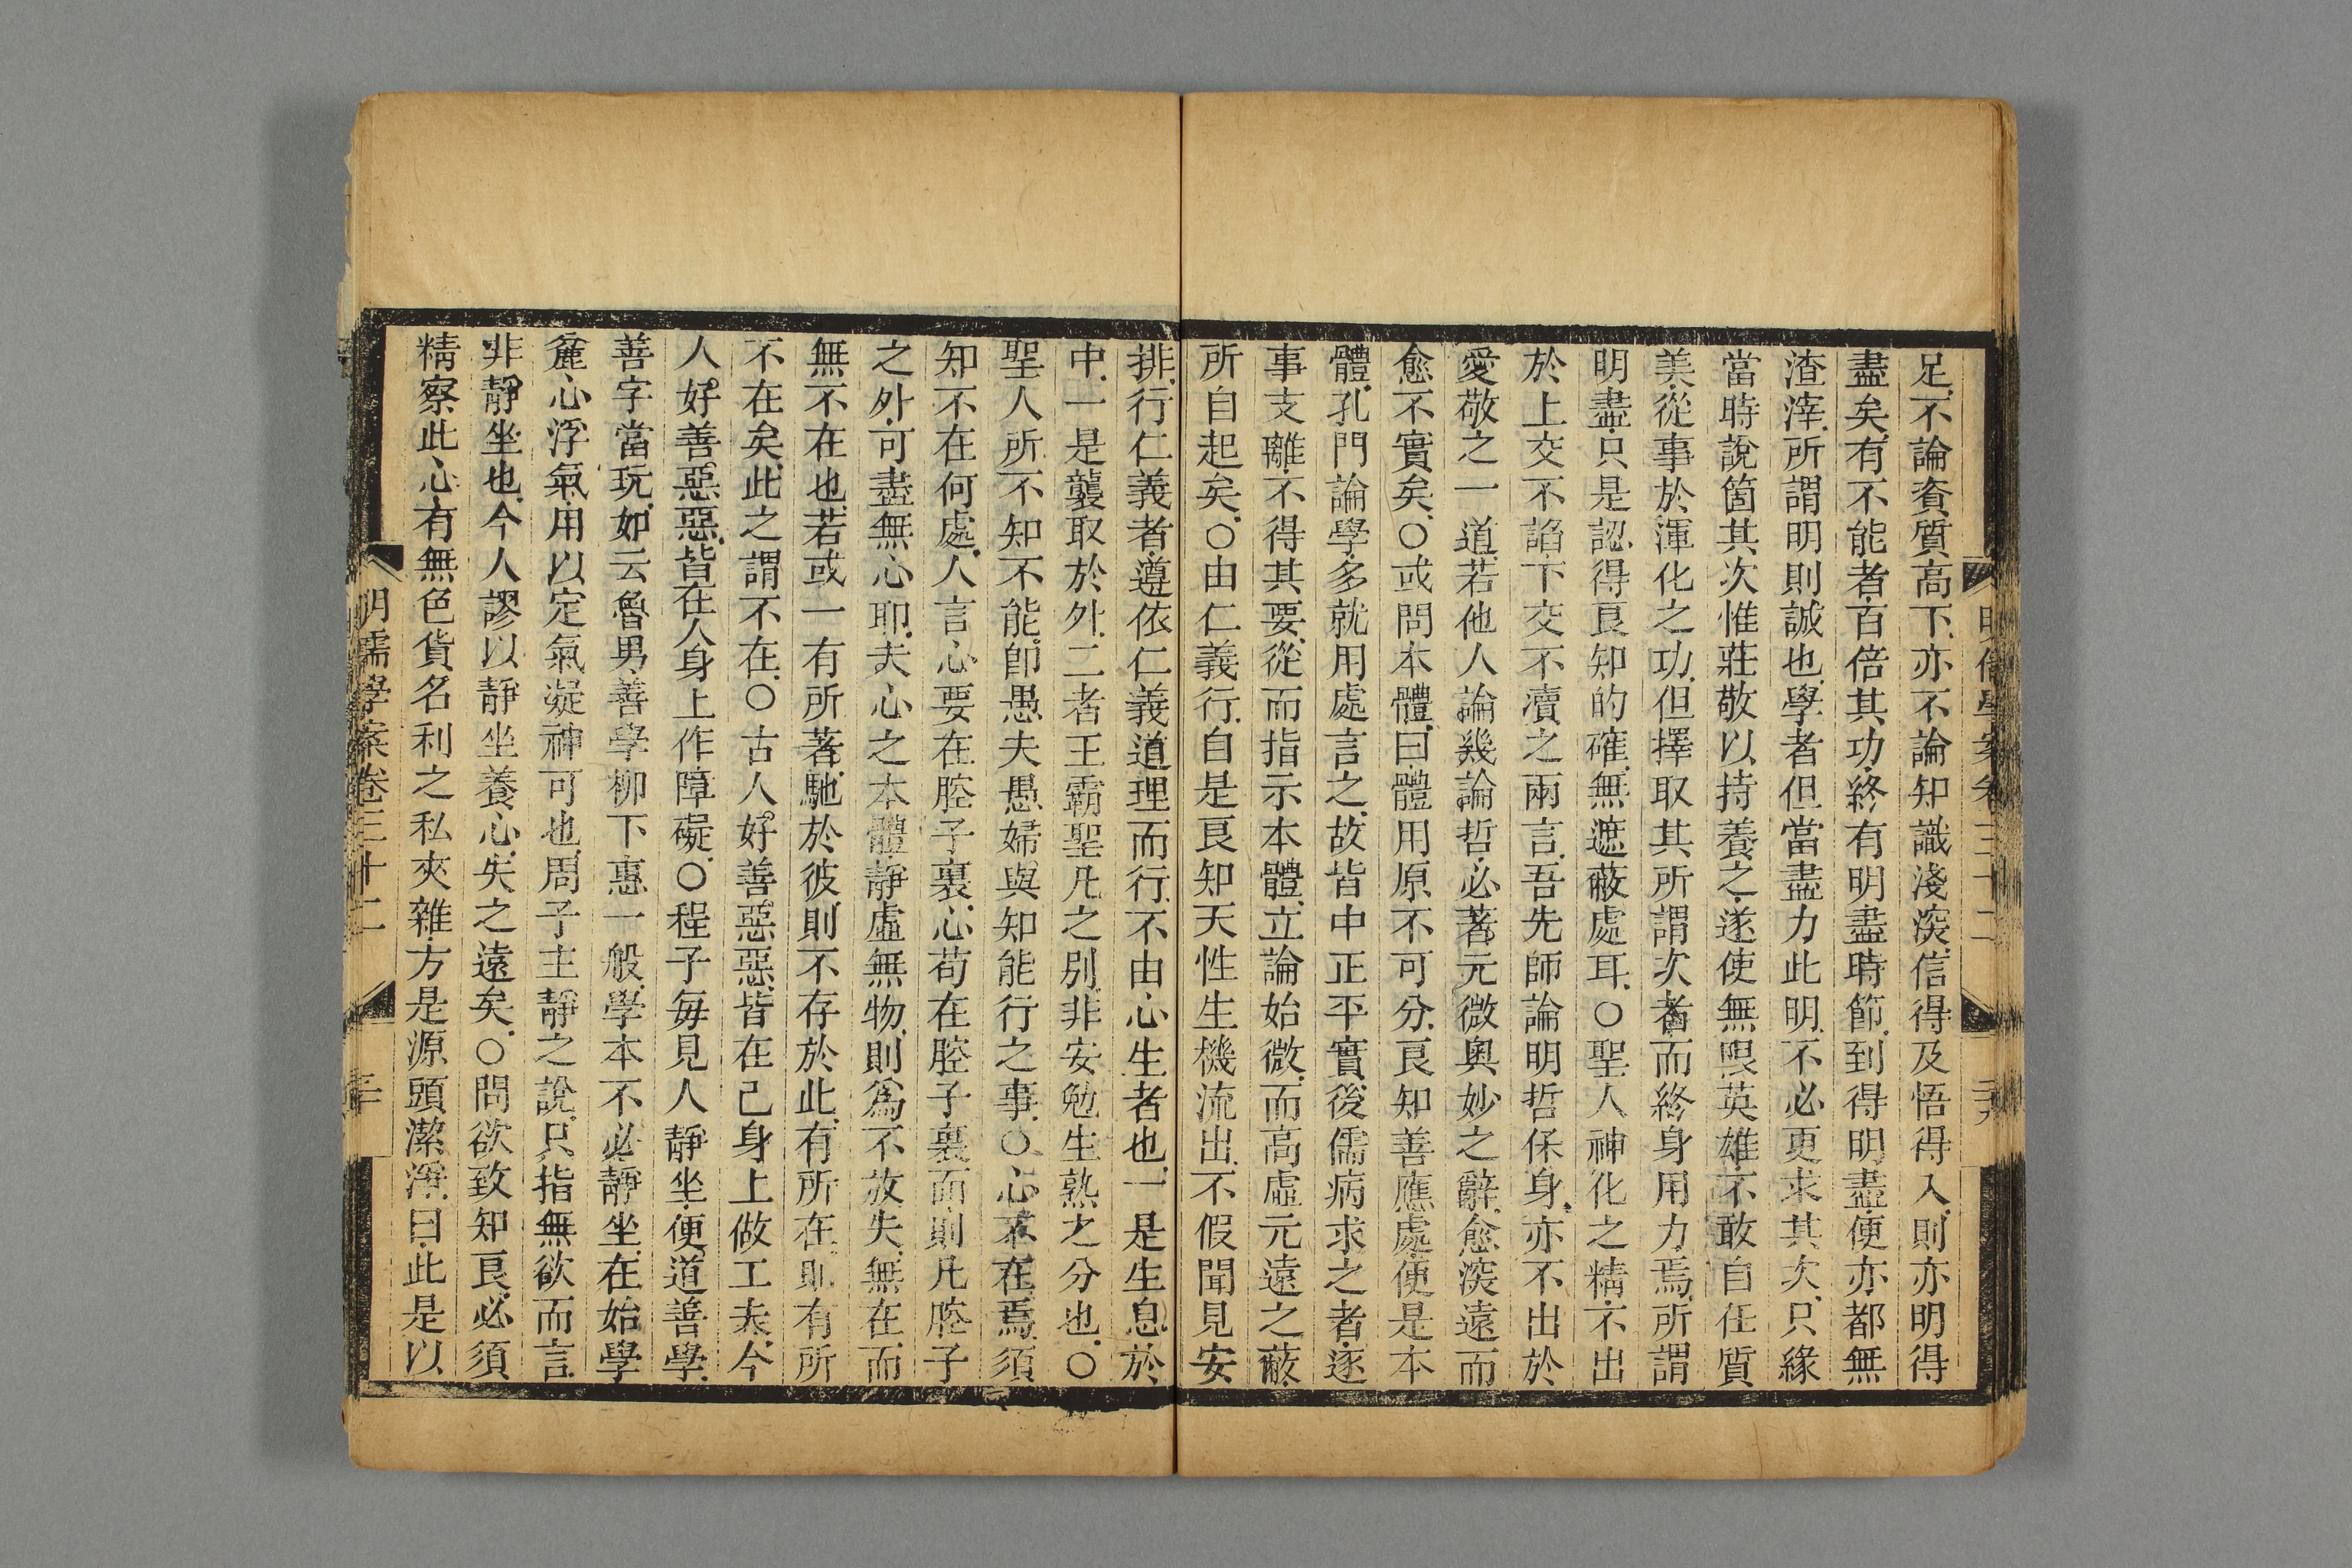 足不論資質高下亦不論知識淺深信得及悟得入則亦明得
盡矣有不能者百倍其功終有明盡時節到得明盡便亦都無
渣滓所謂明則誠也學者但當盡力此明不必更求其次只緣
當時說箇其次惟莊敬以持養之遂使無限英雄不敢自任質
美從事於渾化之功但擇取其所謂次者而終身用力焉所謂
明盡只是認得良知的確無遮蔽處耳○聖人神化之精不出
於上交不諂下交不瀆之兩言吾先師論明哲保身亦不出於
愛敬之一道若他人論幾論哲必著元微奧妙之辭愈深遠而
愈不實矣○或問本體曰體用原不可分良知善應處便是本
體孔門論學多就用處言之故皆中正平實後儒病求之者逐
事支離不得其要從而指示本體立論始微而高虛元遠之蔽
所自起矣○由仁義行自是良知天性生機流出不假聞見安
排行仁義者遵依仁義道理而行不由心生者也一是生息於
中一是襲取於外二者王霸聖凡之別非安勉生熟之分也○
聖人所不知不能卽愚夫愚婦與知能行之事○心不在焉須
知不在何處人言心要在腔子裏心苟在腔子裏面則凡腔子
之外可盡無心耶夫心之本體靜虛無物則爲不放失無在而
無不在也若或一有所著馳於彼則不存於此有所在則有所
不在矣此之謂不在○古人好善惡惡皆在己身上做工夫今
人好善惡惡皆在人身上作障礙○程子每見人靜坐便道善學
善字當玩如云魯男善學柳下惠一般學本不必靜坐在始學
麄心浮氣用以定氣凝神可也周子主靜之說只指無欲而言
非靜坐也今人謬以靜坐養心失之遠矣○問欲致知良必須
精察此心有無色貨名利之私夾雜方是源頭潔淨曰此是以
明儒學案卷三十二
三十